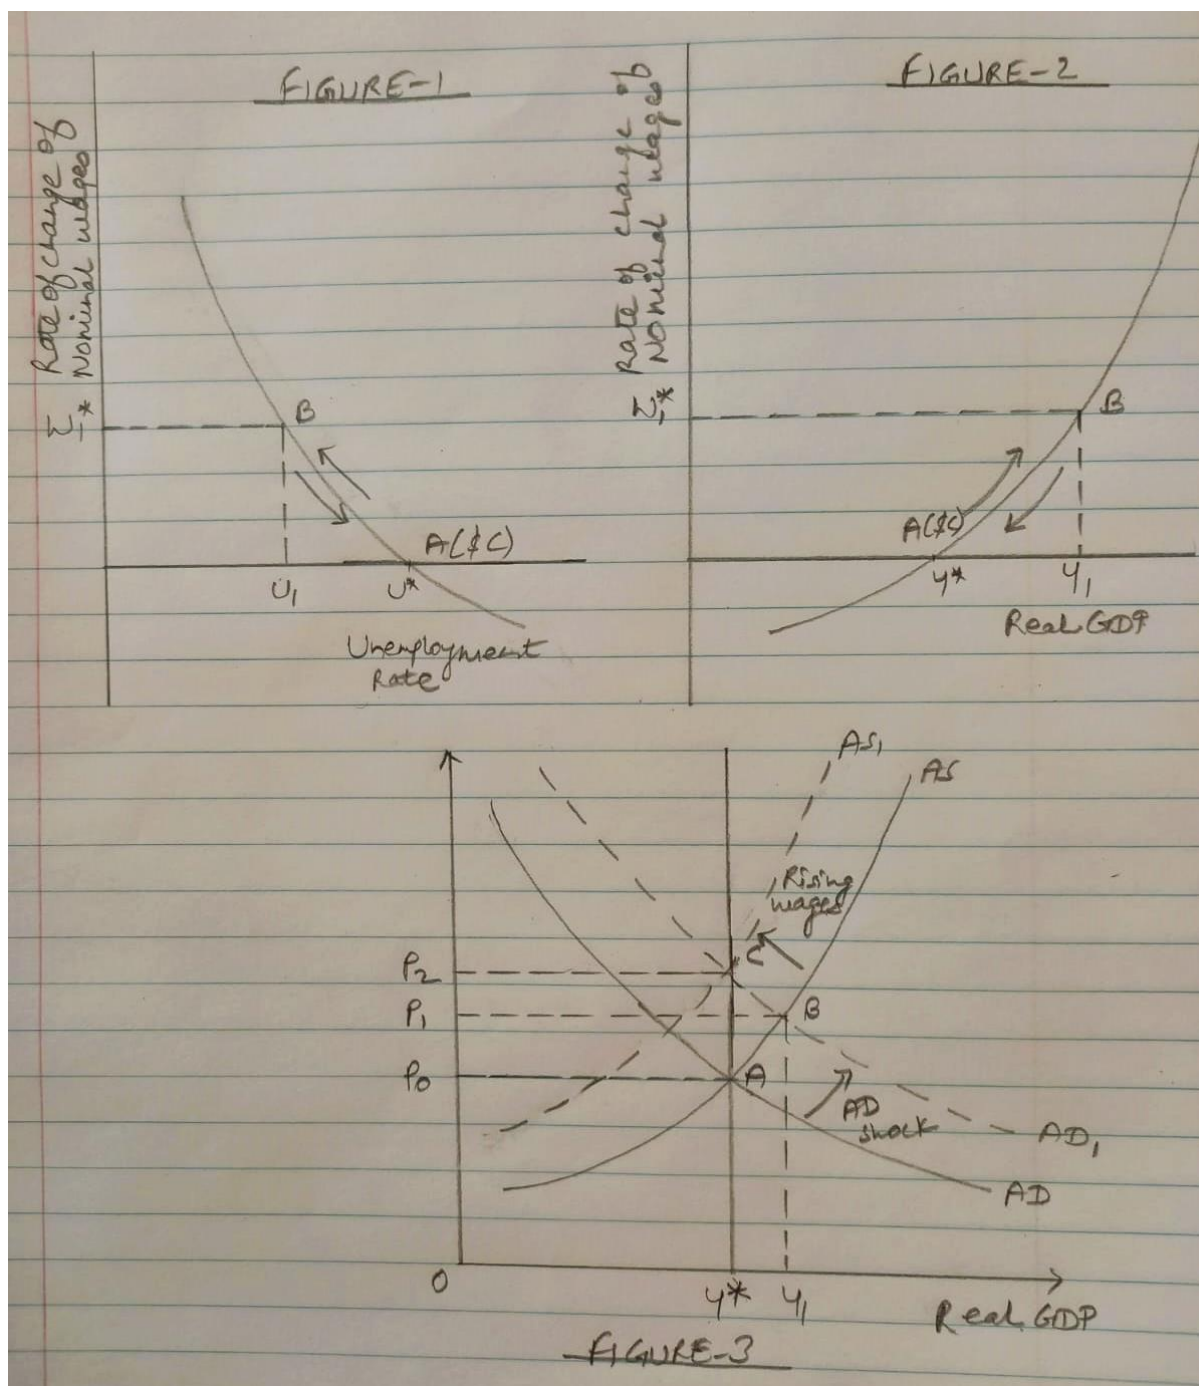 FIGURE-1
Rate of change of
Nominal wages
*
B
A(&C)
U₁
U*
Unemployment
Rate
FIGURE-2
Rate of change of
Nominal wages
*
B
A(&C)
Y*
Y₁
Real GDP
AS₁
AS
Rising
wages
C
P₂
P₁
B
P₀
A
AD
shock
AD₁
AD
O
Y*
Y₁
Real GDP
FIGURE-3